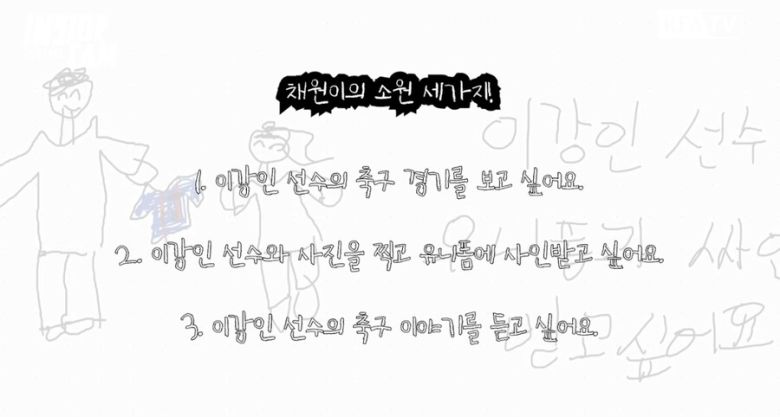 채원이의 소원 세가지!
1. 이강인 선수의 축구 경기를 보고 싶어요.
2. 이강인 선수와 사진을 찍고 유니폼에 사인받고 싶어요.
3. 이강인 선수의 축구 이야기를 듣고 싶어요.
이강인 선수
싶어요